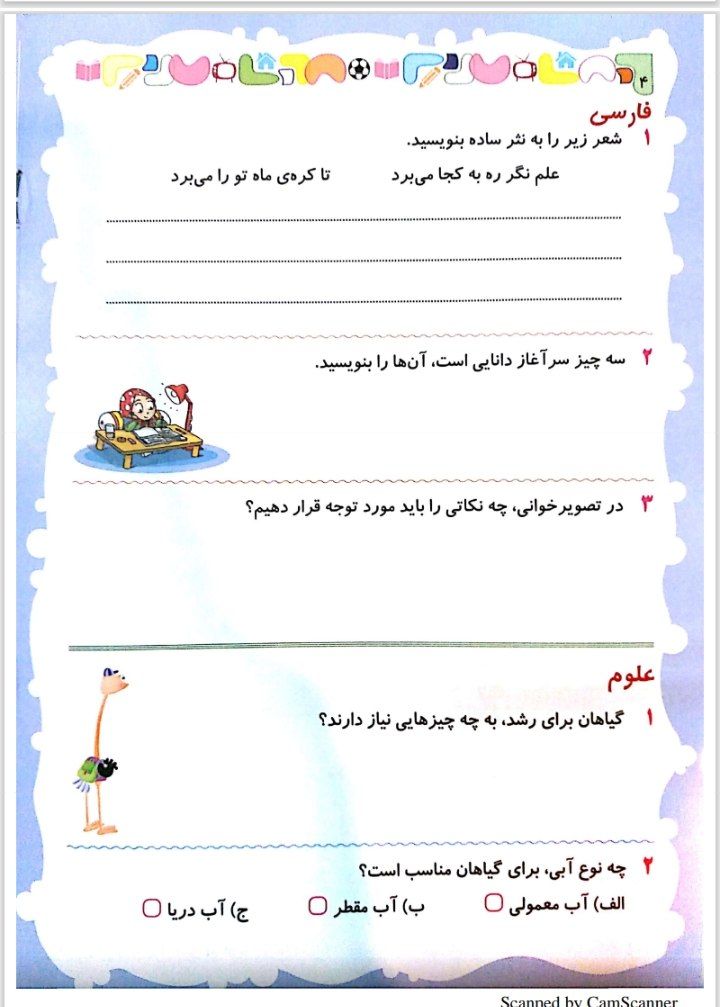 ۴
فارسی
۱ شعر زیر را به نثر ساده بنویسید.
علم نگر ره به کجا می‌برد تا کره‌ی ماه تو را می‌برد
۲ سه چیز سرآغاز دانایی است، آن‌ها را بنویسید.
۳ در تصویرخوانی، چه نکاتی را باید مورد توجه قرار دهیم؟
علوم
۱ گیاهان برای رشد، به چه چیزهایی نیاز دارند؟
۲ چه نوع آبی، برای گیاهان مناسب است؟
الف) آب معمولی ب) آب مقطر ج) آب دریا
Scanned by CamScanner